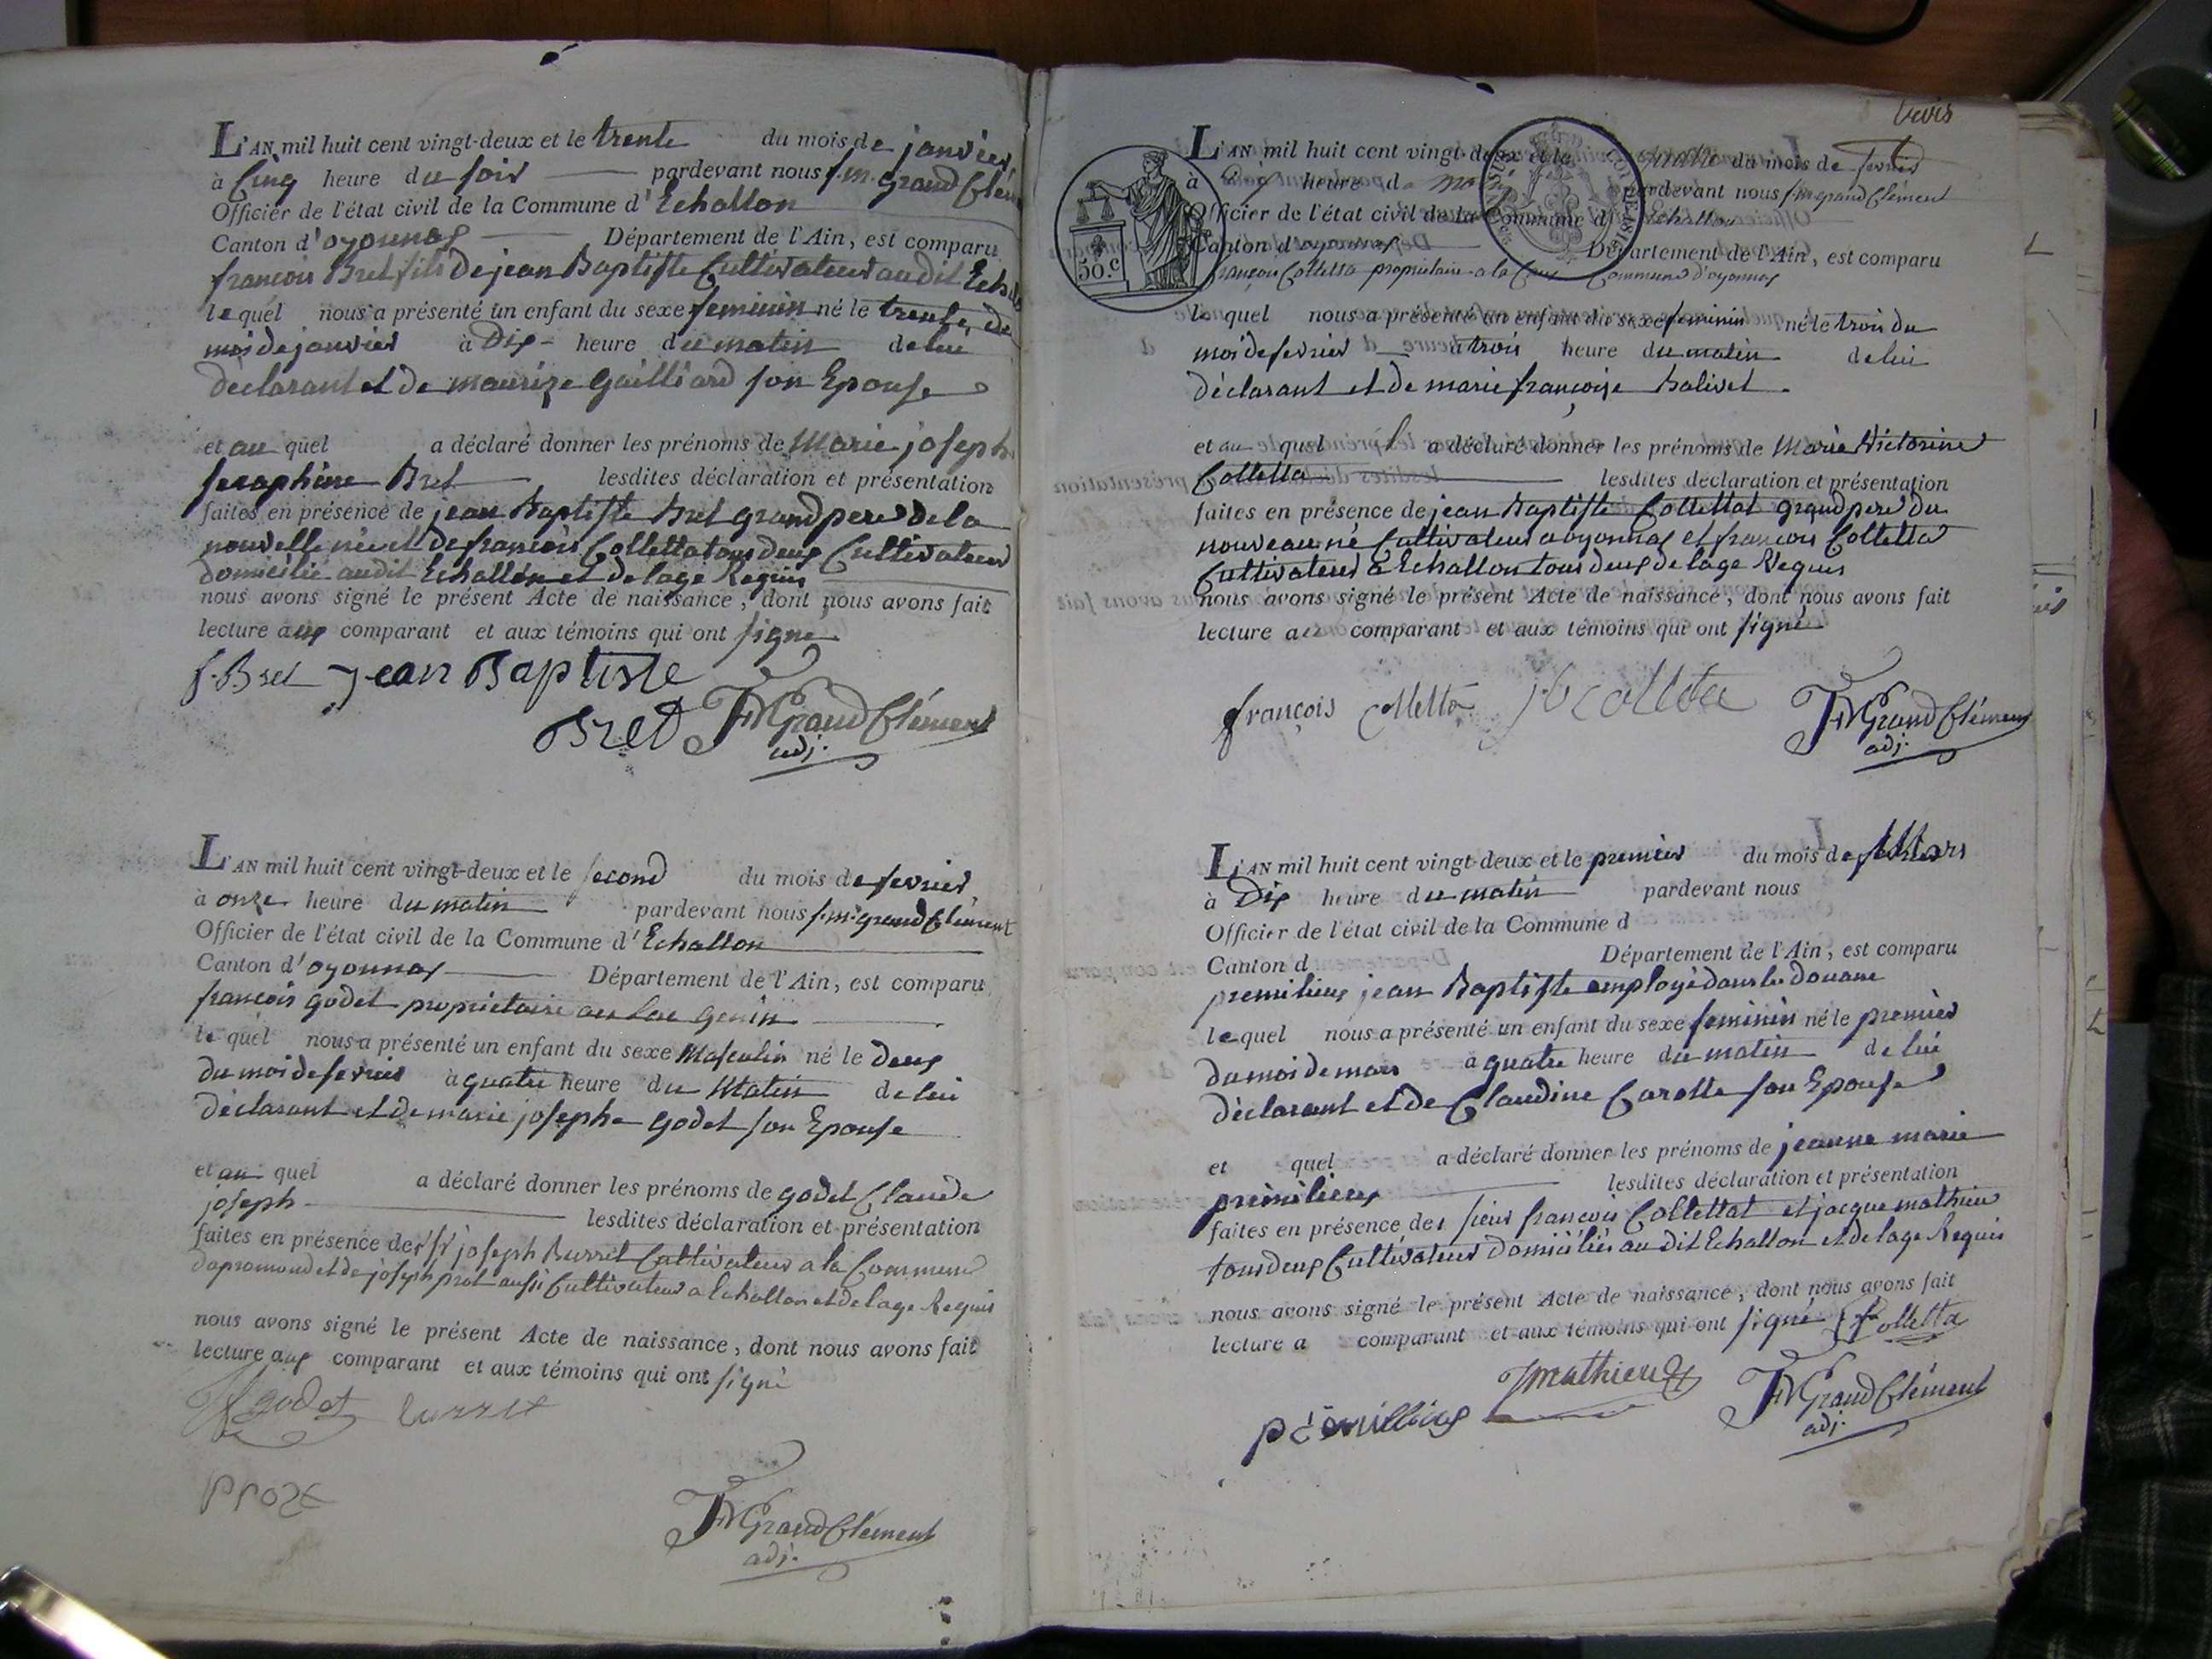 L'AN mil huit cent vingt-deux et le trente du mois de janvier
à Cinq heure du soir pardevant nous f. m. grand Clém
Officier de l'état civil de la Commune d'Echallon
Canton d'oyonnax Département de l'Ain, est comparu
francois Bret fils de jean Baptiste Cultivateur audit Echall
lequel nous a présenté un enfant du sexe feminin né le trente du
mois de janvier à Dix heure du matin de lui
déclarant et de maurize gailliard son Epouse
et au quel a déclaré donner les prénoms de Marie joseph
seraphine Bret lesdites déclaration et présentation
faites en présence de jean Baptiste bret grand pere de la
nouvelle née et de francois Colletta tous deux Cultivateur
domicilié audit Echallon et de lage Requis
nous avons signé le présent Acte de naissance, dont nous avons fait
lecture aux comparant et aux témoins qui ont signe
f. Bret jean Baptiste
Bret FMGrandClément
adj.
L'AN mil huit cent vingt-deux et le second du mois de fevrier
à onze heure du matin pardevant nous f. m. grand Clément
Officier de l'état civil de la Commune d'Echallon
Canton d'oyonnax Département de l'Ain, est comparu
francois godet proprietaire au Lac genin
le quel nous a présenté un enfant du sexe Masculin né le deux
du moi de fevrier à quatre heure du Matin de lui
déclarant et de marie josephe godet son Epouse
et au quel a déclaré donner les prénoms de godet Claude
joseph lesdites déclaration et présentation
faites en présence des Sr joseph Burret Cultivateur a la Commune
dapromond et de joseph prost aussi Cultivateur a Echallon et de lage Requis
nous avons signé le présent Acte de naissance, dont nous avons fait
lecture aux comparant et aux témoins qui ont signé
godet burret
Prost
FMGrandClément
adj.
trois
L'AN mil huit cent vingt-deux et le quatre du mois de fevrier
à heure d matin pardevant nous f m grand Clément
Officier de l'état civil de la Commune d Echallon
Canton d'oyonnax Département de l'Ain, est comparu
françois Colletta proprietaire a la Commune d'oyonnax
50.c
le quel nous a présenté un enfant du sexe feminin né le trois du
moi de fevrier à trois heure du matin de lui
déclarant et de marie françoise balivet
et au quel a déclaré donner les prénoms de Marie Victorine
Colletta lesdites déclaration et présentation
faites en présence de jean Baptiste Collettat grand pere du
nouveau né Cultivateur a oyonnax et francois Colletta
Cultivateur a Echallon tous deux de lage Requis
nous avons signé le présent Acte de naissance, dont nous avons fait
lecture au comparant et aux témoins qui ont signé
françois colletta colletta FMGrandClément
adj.
L'AN mil huit cent vingt-deux et le premier du mois de Mars
à Dix heure du matin pardevant nous
Officier de l'état civil de la Commune d
Canton d Département de l'Ain, est comparu
premilieux jean Baptiste employé dans les douane
lequel nous a présenté un enfant du sexe feminin né le premier
du moi de mars à quatre heure du matin de lui
déclarant et de Claudine Carotte son Epouse
et quel a déclaré donner les prénoms de jeanne marie
premilieux lesdites déclaration et présentation
faites en présence des sieur francois Collettat et jacque mathieu
tous deux Cultivateur domiciliés au dit Echallon et de lage Requis
nous avons signé le présent Acte de naissance, dont nous avons fait
lecture a comparant et aux témoins qui ont signé f Colletta
prémillieux jmathieu FMGrandClément
adj.